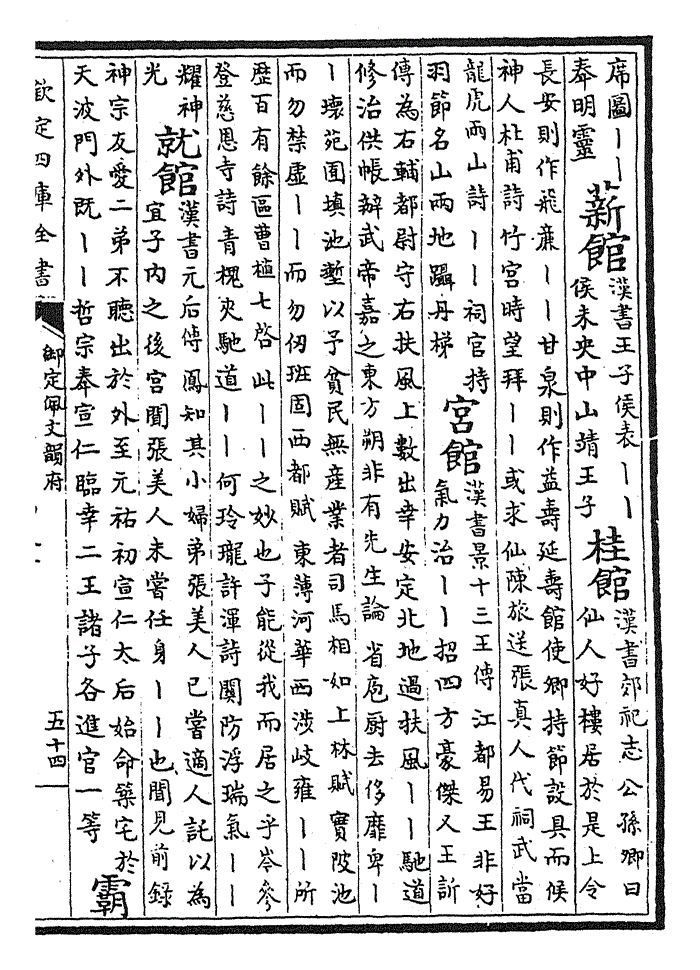 席圖丨丨
奉明靈
薪館
漢書王子侯表丨丨
侯未央中山靖王子
桂館
漢書郊祀志公孫卿曰
仙人好樓居於是上令
長安則作飛廉丨丨甘泉則作益壽延壽館使卿持節設具而候
神人杜甫詩竹宮時望拜丨丨或求仙陳旅送張真人代祠武當
龍虎兩山詩丨丨祠官持
羽節名山兩地躡丹梯
宮館
漢書景十三王傳江都易王非好
氣力治丨丨招四方豪傑又王訢
傳為右輔都尉守右扶風上數出幸安定北地過扶風丨丨馳道
修治供帳辦武帝嘉之東方朔非有先生論省庖厨去侈靡卑丨
丨壞苑囿填池塹以予貧民無産業者司馬相如上林賦實陂池
而勿禁虛丨丨而勿仞班固西都賦東薄河華西涉岐雍丨丨所
歷百有餘區曹植七啓此丨丨之妙也子能從我而居之乎岑參
登慈恩寺詩青槐夾馳道丨丨何玲瓏許渾詩闕防浮瑞氣丨丨
耀神
光
就館
漢書元后傳鳳知其小婦弟張美人已嘗適人託以為
宜子内之後宮聞張美人未嘗任身丨丨也聞見前録
神宗友愛二弟不聽出於外至元祐初宣仁太后始命築宅於
天波門外既丨丨哲宗奉宣仁臨幸二王諸子各進官一等
霸
欽定四庫全書
御定佩文韻府
五十四